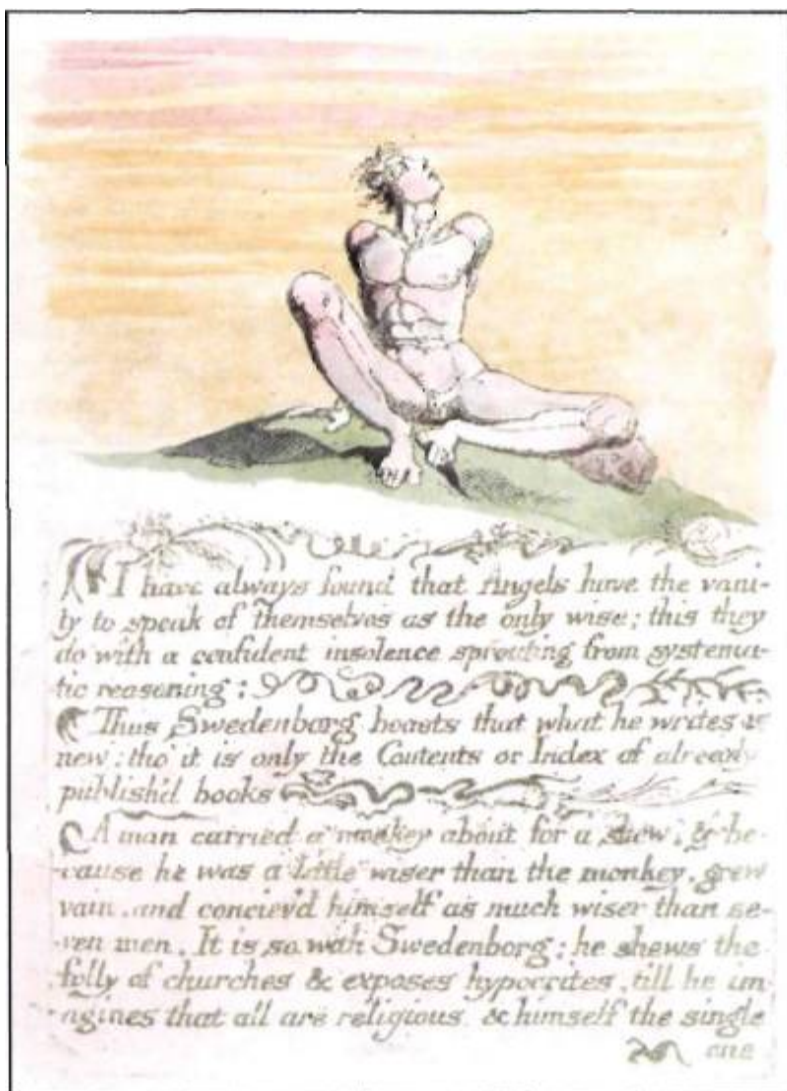 I have always found that Angels have the vani-
ty to speak of themselves as the only wise; this they
do with a confident insolence sprouting from systema-
tic reasoning:
Thus Swedenborg boasts that what he writes is
new; tho' it is only the Contents or Index of already
publish'd books
A man carried a monkey about for a shew, & be-
cause he was a little wiser than the monkey, grew
vain, and conciev'd himself as much wiser than se-
ven men. It is so with Swedenborg; he shews the
folly of churches & exposes hypocrites, till he im-
agines that all are religious, & himself the single
one